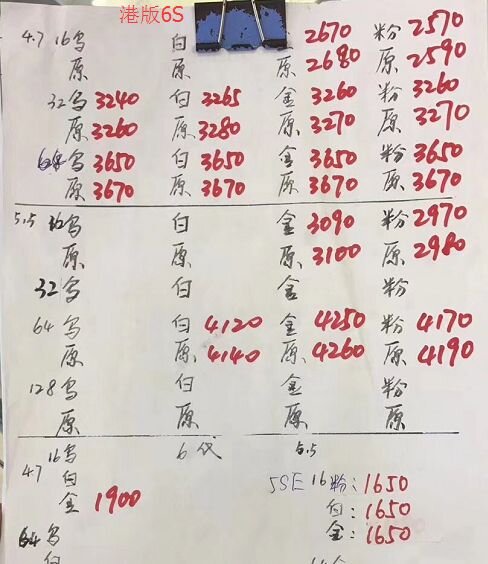 港版6S
4.7 16乌 白 2670 粉 2570
原 原 原 2680 原 2590
32乌 3240 白 3265 金 3260 粉 3260
原 3260 原 3280 原 3270 原 3270
64乌 3650 白 3650 金 3650 粉 3650
原 3670 原 3670 原 3670 原 3670
5.5 16乌 白 金 3090 粉 2970
原 原 原 3100 原 2980
32乌 白 金 粉
64乌 白 4120 金 4250 粉 4170
原 原 4140 原 4260 原 4190
128乌 白 金 粉
原 原 原 原
4.7 16乌 6代 5.5
白 5SE 16粉：1650
金 1900 白：1650
金：1650
64乌
白